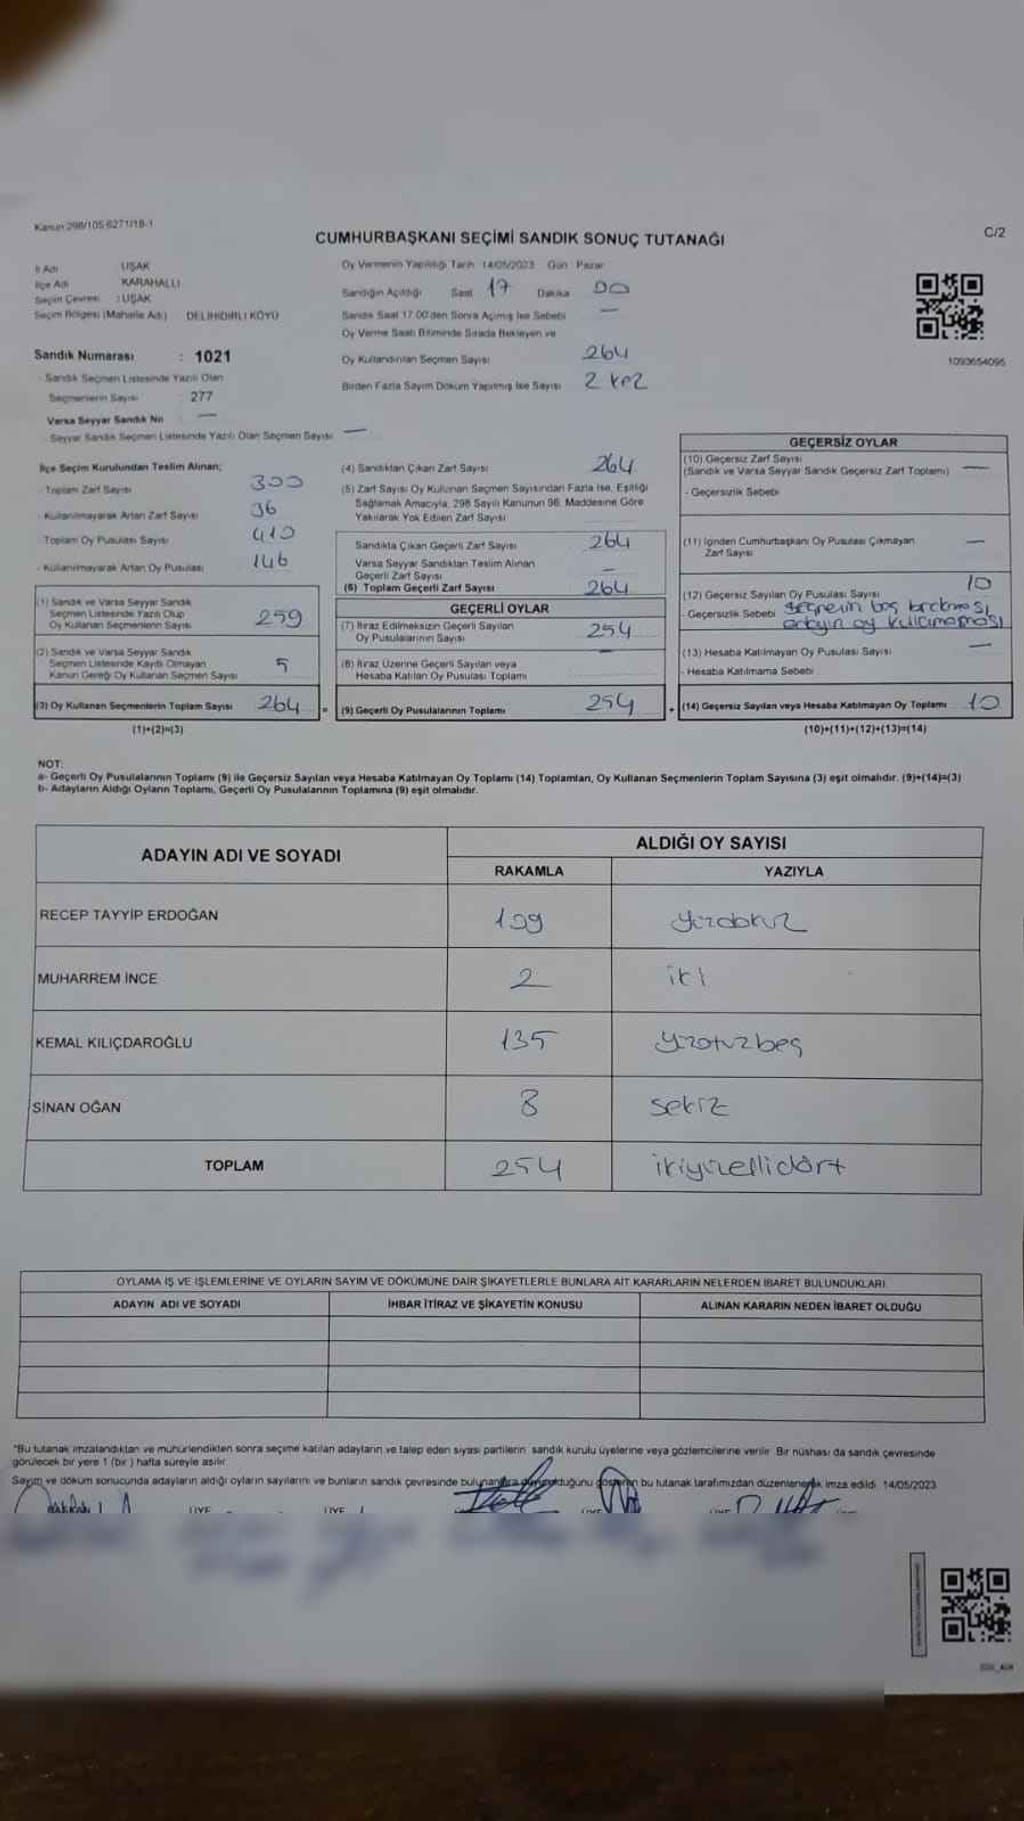 Kanun 298/105 6271/18-1
CUMHURBAŞKANI SEÇİMİ SANDIK SONUÇ TUTANAĞI
C/2
İl Adı : UŞAK
İlçe Adı : KARAHALLI
Seçim Çevresi : UŞAK
Seçim Bölgesi (Mahalle Adı) DELİHIDIRLI KÖYÜ
Sandık Numarası : 1021
- Sandık Seçmen Listesinde Yazılı Olan
Seçmenlerin Sayısı 277
Varsa Seyyar Sandık No —
- Seyyar Sandık Seçmen Listesinde Yazılı Olan Seçmen Sayısı —
Oy Vermenin Yapıldığı Tarih 14/05/2023 Gün : Pazar
Sandığın Açıldığı Saat 17 Dakika 00
Sandık Saat 17.00'den Sonra Açılmış İse Sebebi —
Oy Verme Saati Bitiminde Sırada Bekleyen ve
Oy Kullandırılan Seçmen Sayısı 264
Birden Fazla Sayım Döküm Yapılmış İse Sayısı 2 kez
1093654095
İlçe Seçim Kurulundan Teslim Alınan;
- Toplam Zarf Sayısı 300
- Kullanılmayarak Artan Zarf Sayısı 36
- Toplam Oy Pusulası Sayısı 410
- Kullanılmayarak Artan Oy Pusulası 146
(1) Sandık ve Varsa Seyyar Sandık
Seçmen Listesinde Yazılı Olup
Oy Kullanan Seçmenlerin Sayısı 259
(2) Sandık ve Varsa Seyyar Sandık
Seçmen Listesinde Kayıtlı Olmayan
Kanun Gereği Oy Kullanan Seçmen Sayısı 5
(3) Oy Kullanan Seçmenlerin Toplam Sayısı 264
(1)+(2)=(3)
(4) Sandıktan Çıkan Zarf Sayısı 264
(5) Zarf Sayısı Oy Kullanan Seçmen Sayısından Fazla İse, Eşitliği
Sağlamak Amacıyla, 298 Sayılı Kanunun 98. Maddesine Göre
Yakılarak Yok Edilen Zarf Sayısı
Sandıkta Çıkan Geçerli Zarf Sayısı 264
Varsa Seyyar Sandıktan Teslim Alınan
Geçerli Zarf Sayısı —
(6) Toplam Geçerli Zarf Sayısı 264
GEÇERLİ OYLAR
(7) İtiraz Edilmeksizin Geçerli Sayılan
Oy Pusulalarının Sayısı 254
(8) İtiraz Üzerine Geçerli Sayılan veya
Hesaba Katılan Oy Pusulası Toplamı —
= (9) Geçerli Oy Pusulalarının Toplamı 254
GEÇERSİZ OYLAR
(10) Geçersiz Zarf Sayısı
(Sandık ve Varsa Seyyar Sandık Geçersiz Zarf Toplamı) —
- Geçersizlik Sebebi
(11) İçinden Cumhurbaşkanı Oy Pusulası Çıkmayan
Zarf Sayısı —
(12) Geçersiz Sayılan Oy Pusulası Sayısı 10
- Geçersizlik Sebebi seçmenin boş bırakması,
oy kullanmaması
(13) Hesaba Katılmayan Oy Pusulası Sayısı —
- Hesaba Katılmama Sebebi
+ (14) Geçersiz Sayılan veya Hesaba Katılmayan Oy Toplamı 10
(10)+(11)+(12)+(13)=(14)
NOT:
a- Geçerli Oy Pusulalarının Toplamı (9) ile Geçersiz Sayılan veya Hesaba Katılmayan Oy Toplamı (14) Toplamları, Oy Kullanan Seçmenlerin Toplam Sayısına (3) eşit olmalıdır. (9)+(14)=(3)
b- Adayların Aldığı Oyların Toplamı, Geçerli Oy Pusulalarının Toplamına (9) eşit olmalıdır.
ADAYIN ADI VE SOYADI ALDIĞI OY SAYISI
RAKAMLA YAZIYLA
RECEP TAYYİP ERDOĞAN 109 yüzdokuz
MUHARREM İNCE 2 iki
KEMAL KILIÇDAROĞLU 135 yüzotuzbeş
SİNAN OĞAN 8 sekiz
TOPLAM 254 ikiyüzellidört
OYLAMA İŞ VE İŞLEMLERİNE VE OYLARIN SAYIM VE DÖKÜMÜNE DAİR ŞİKAYETLERLE BUNLARA AİT KARARLARIN NELERDEN İBARET BULUNDUKLARI
ADAYIN ADI VE SOYADI İHBAR İTİRAZ VE ŞİKAYETİN KONUSU ALINAN KARARIN NEDEN İBARET OLDUĞU
*Bu tutanak imzalandıktan ve mühürlendikten sonra seçime katılan adayların ve talep eden siyasi partilerin sandık kurulu üyelerine veya gözlemcilerine verilir. Bir nüshası da sandık çevresinde
görülecek bir yere 1 (bir ) hafta süreyle asılır.
Sayım ve döküm sonucunda adayların aldığı oyların sayılarını ve bunların sandık çevresinde bulunanlara duyurulduğunu gösteren bu tutanak tarafımızdan düzenlenerek imza edildi. 14/05/2023
ÜYE ÜYE ÜYE ÜYE